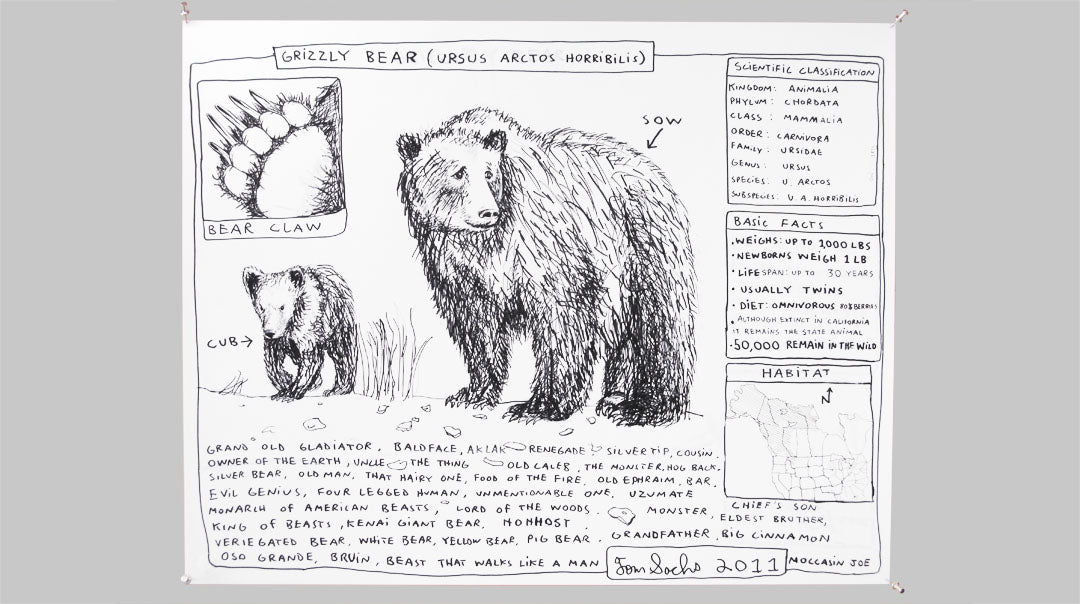 GRIZZLY BEAR (URSUS ARCTOS HORRIBILIS)
BEAR CLAW
CUB
SOW
SCIENTIFIC CLASSIFICATION
KINGDOM: ANIMALIA
PHYLUM: CHORDATA
CLASS: MAMMALIA
ORDER: CARNIVORA
FAMILY: URSIDAE
GENUS: URSUS
SPECIES: U. ARCTOS
SUBSPECIES: U. A. HORRIBILIS
BASIC FACTS
• WEIGHS: UP TO 1,000 LBS
• NEWBORNS WEIGH 1 LB
• LIFESPAN: UP TO 30 YEARS
• USUALLY TWINS
• DIET: OMNIVOROUS 80% BERRIES
• ALTHOUGH EXTINCT IN CALIFORNIA
IT REMAINS THE STATE ANIMAL
• 50,000 REMAIN IN THE WILD
HABITAT
N
GRAND OLD GLADIATOR, BALDFACE, AKLAK RENEGADE, SILVERTIP, COUSIN.
OWNER OF THE EARTH, UNCLE THE THING OLD CALEB, THE MONSTER, HOG BACK.
SILVER BEAR, OLD MAN, THAT HAIRY ONE, FOOD OF THE FIRE, OLD EPHRAIM, BAR.
EVIL GENIUS, FOUR LEGGED HUMAN, UNMENTIONABLE ONE, UZUMATE
MONARCH OF AMERICAN BEASTS, LORD OF THE WOODS. MONSTER, CHIEF'S SON
KING OF BEASTS, KENAI GIANT BEAR, HOHHOST ELDEST BRUTHER,
VERIEGATED BEAR, WHITE BEAR, YELLOW BEAR, PIG BEAR. GRANDFATHER, BIG CINNAMON
OSO GRANDE, BRUIN, BEAST THAT WALKS LIKE A MAN Tom Sachs 2011 MOCCASIN JOE